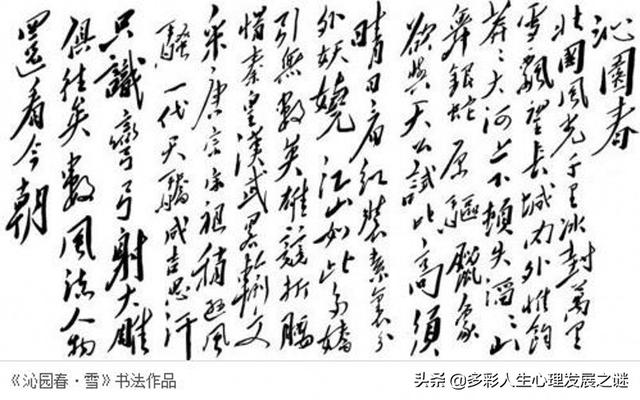 沁園春
北國風光千里冰封萬里
雪飄望長城內外惟餘
莽々大河上下頓失滔々山
舞銀蛇原驅臘象
欲與天公試比高須
晴日看紅裝素裹分
外妖嬈江山如此多嬌
引無數英雄競折腰
惜秦皇漢武略輸文
采唐宗宋祖稍遜風
騷一代天驕成吉思汗
只識彎弓射大雕
俱往矣數風流人物
還看今朝
《沁园春·雪》书法作品
头条 @多彩人生心理发展之谜